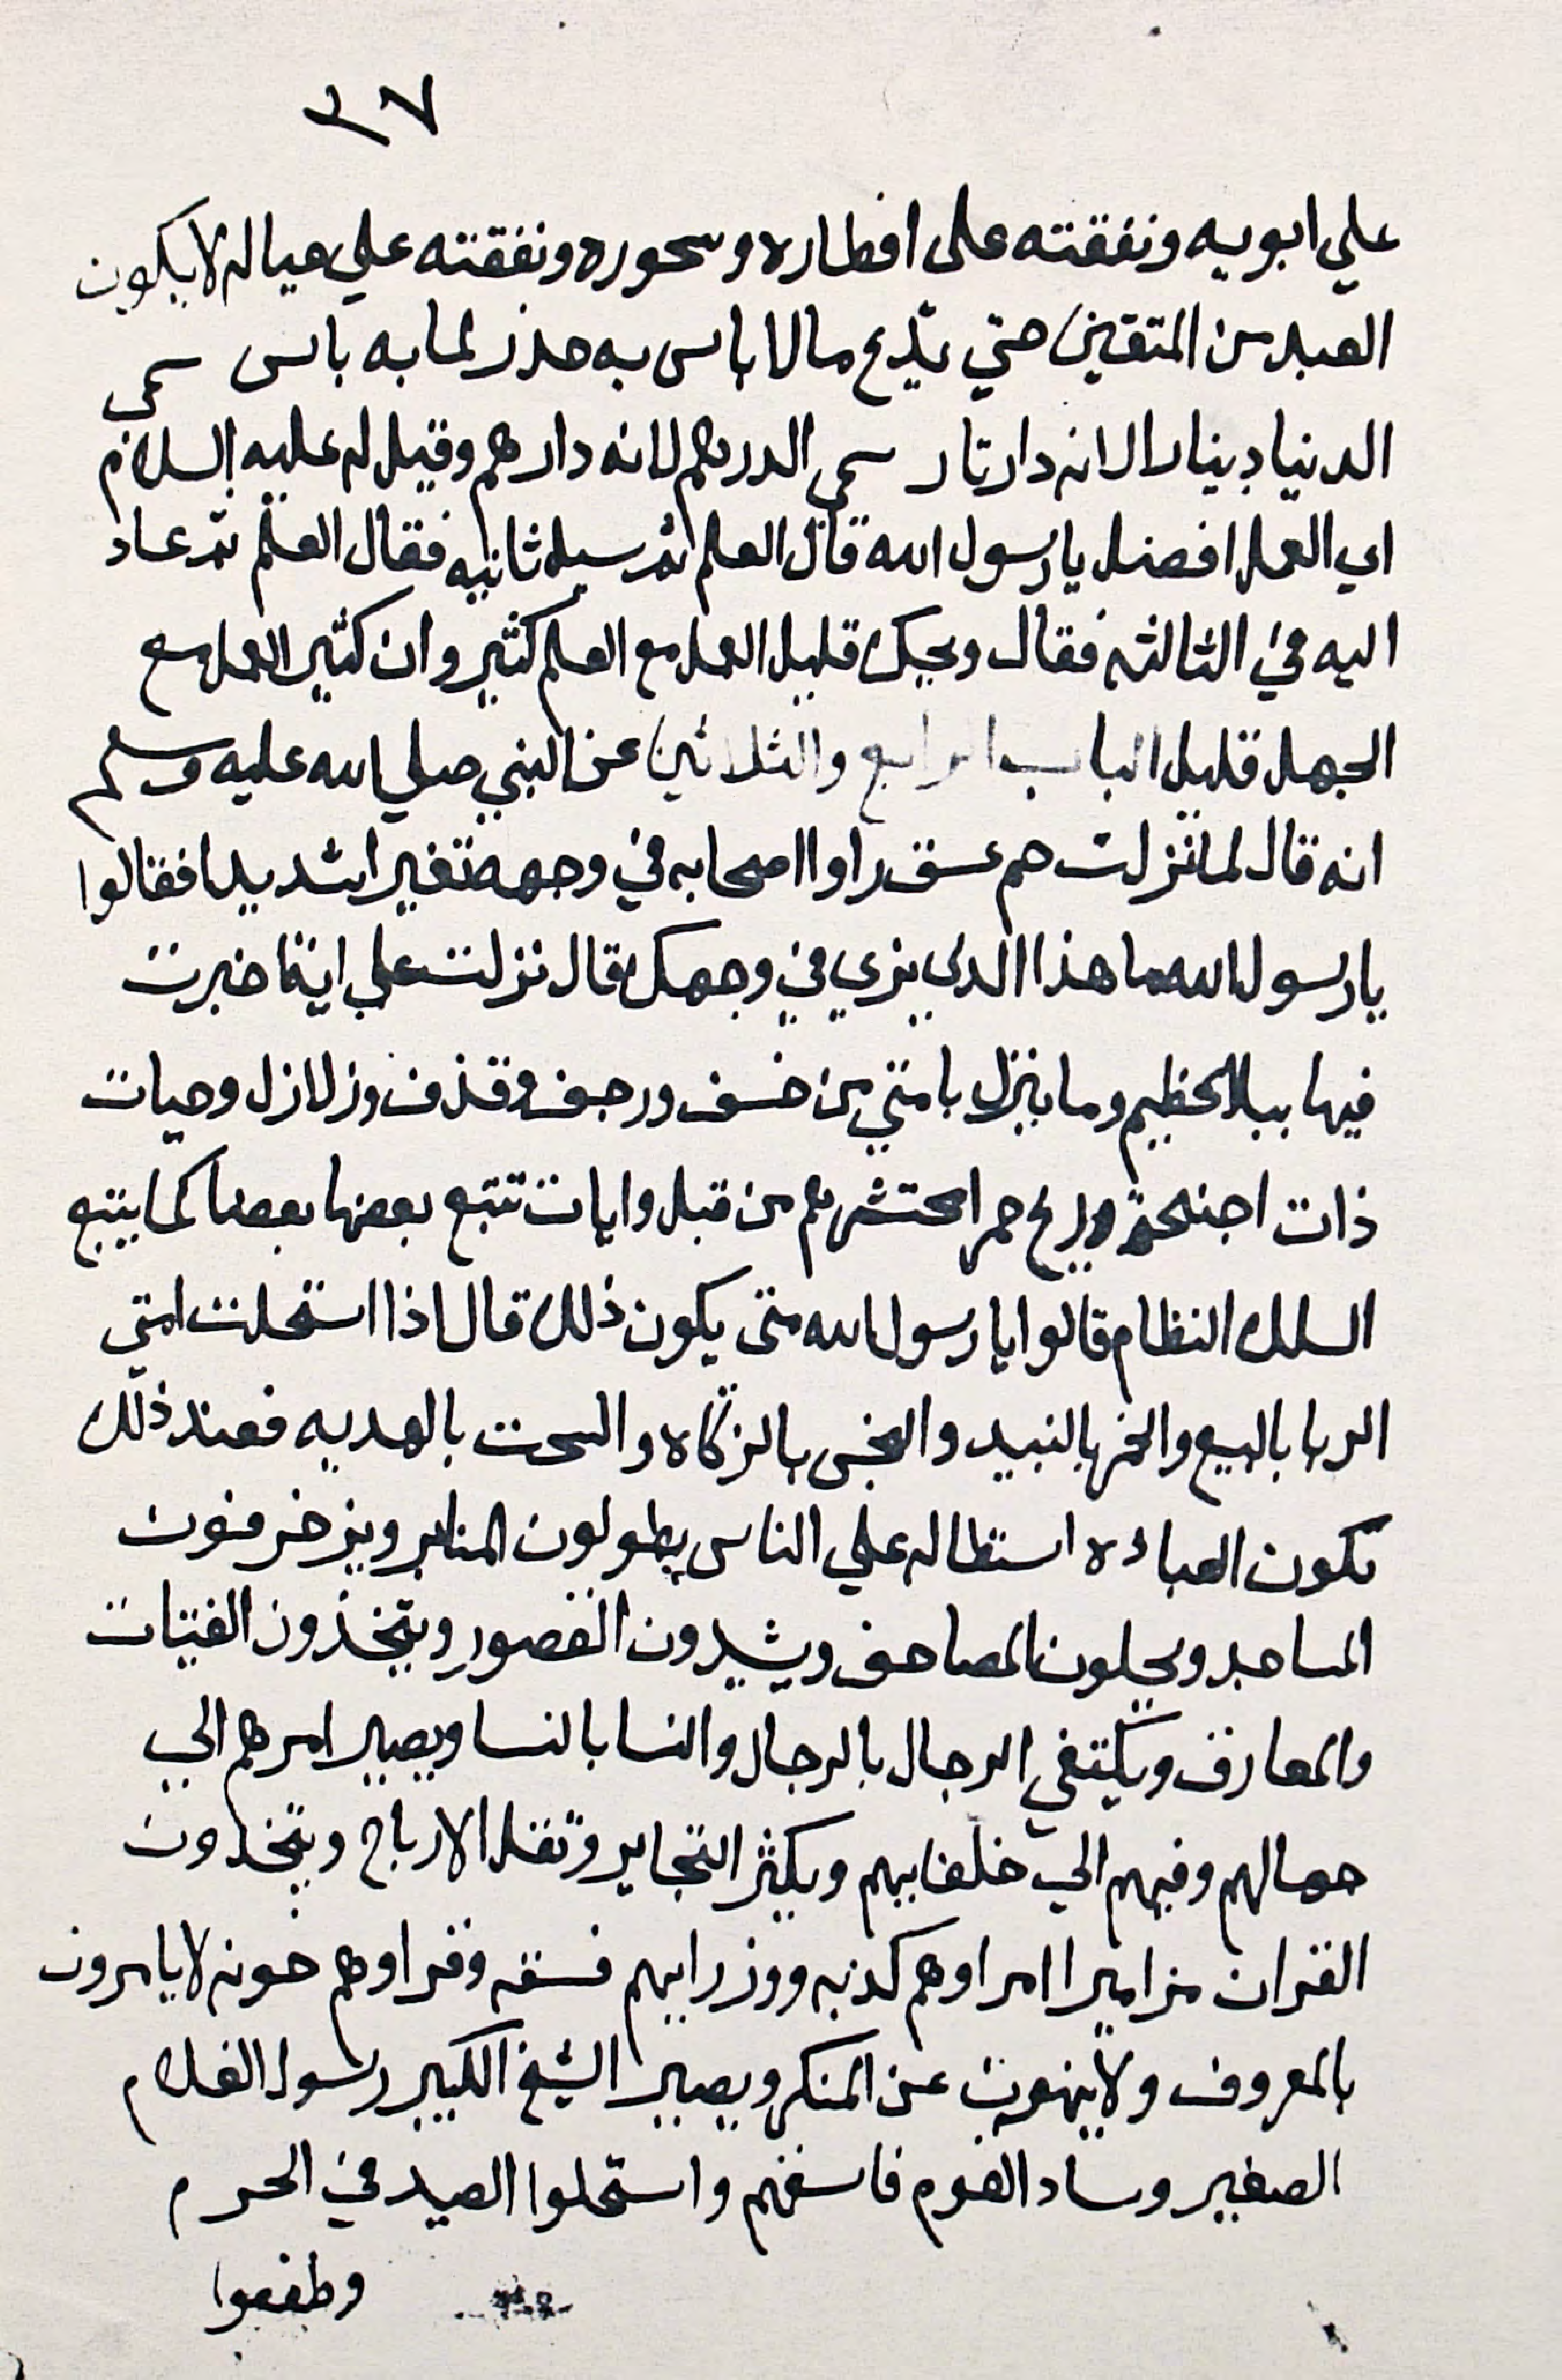 ٣٧
علي ابويه ونفقته على افطاره وسحوره ونفقته علي عياله لا يكون
العبد من المتقين حتي يدع مالا باس به حذر لما به باس سمى
الدنيا دينار الانه دار نار سمى الدرهم لانه دارهم وقيل له عليه السلام
اي العمل افضل يا رسول الله قال العلم ثم سيل ثانيه فقال العلم ثم عاد
اليه في الثالثه فقال ويحك قليل العمل مع العلم كثير وان كثير العمل مع
الجهل قليل الباب الرابع والثلاثين عن النبي صلي الله عليه وسلم
انه قال لما نزلت حم عسق راوا اصحابه في وجهه تغيرا شديدا فقالوا
يا رسول الله ما هذا الدي نري في وجهك فقال نزلت علي اية اخبرت
فيها ببلا عظيم وما ينزل بامتي من خسف ورجف وقذف وزلازل وحيات
ذات اجنحة وريح حمرا تحتشرهم من قبل وايات تتبع بعضها بعضا كما يتبع
السلك النظام قالوا يا رسول الله متى يكون ذلك قال اذا استحلت امتي
الربا بالبيع والخمر بالنبيد والبخس بالزكاه والسحت بالهديه فعند ذلك
تكون العباده استطاله علي الناس يطولون المنابر ويزخرفون
المساجد ويحلون المصاحف ويشيدون القصور ويتخذون القينات
والمعازف ويكتفي الرجال بالرجال والنسا بالنسا ويصير امرهم الي
جهالهم وفيهم الي خلفايهم ويكثر التجاير وتقل الارباح ويتخدون
القران مزاميرا امراوهم كدبه ووزرايهم فسقه وقراوهم خونه لا يامرون
بالمعروف ولا ينهون عن المنكر ويصير الشيخ الكبير رسول الغلام
الصغير وساد القوم فاسقهم واستحلوا الصيد في الحرم
وطففوا